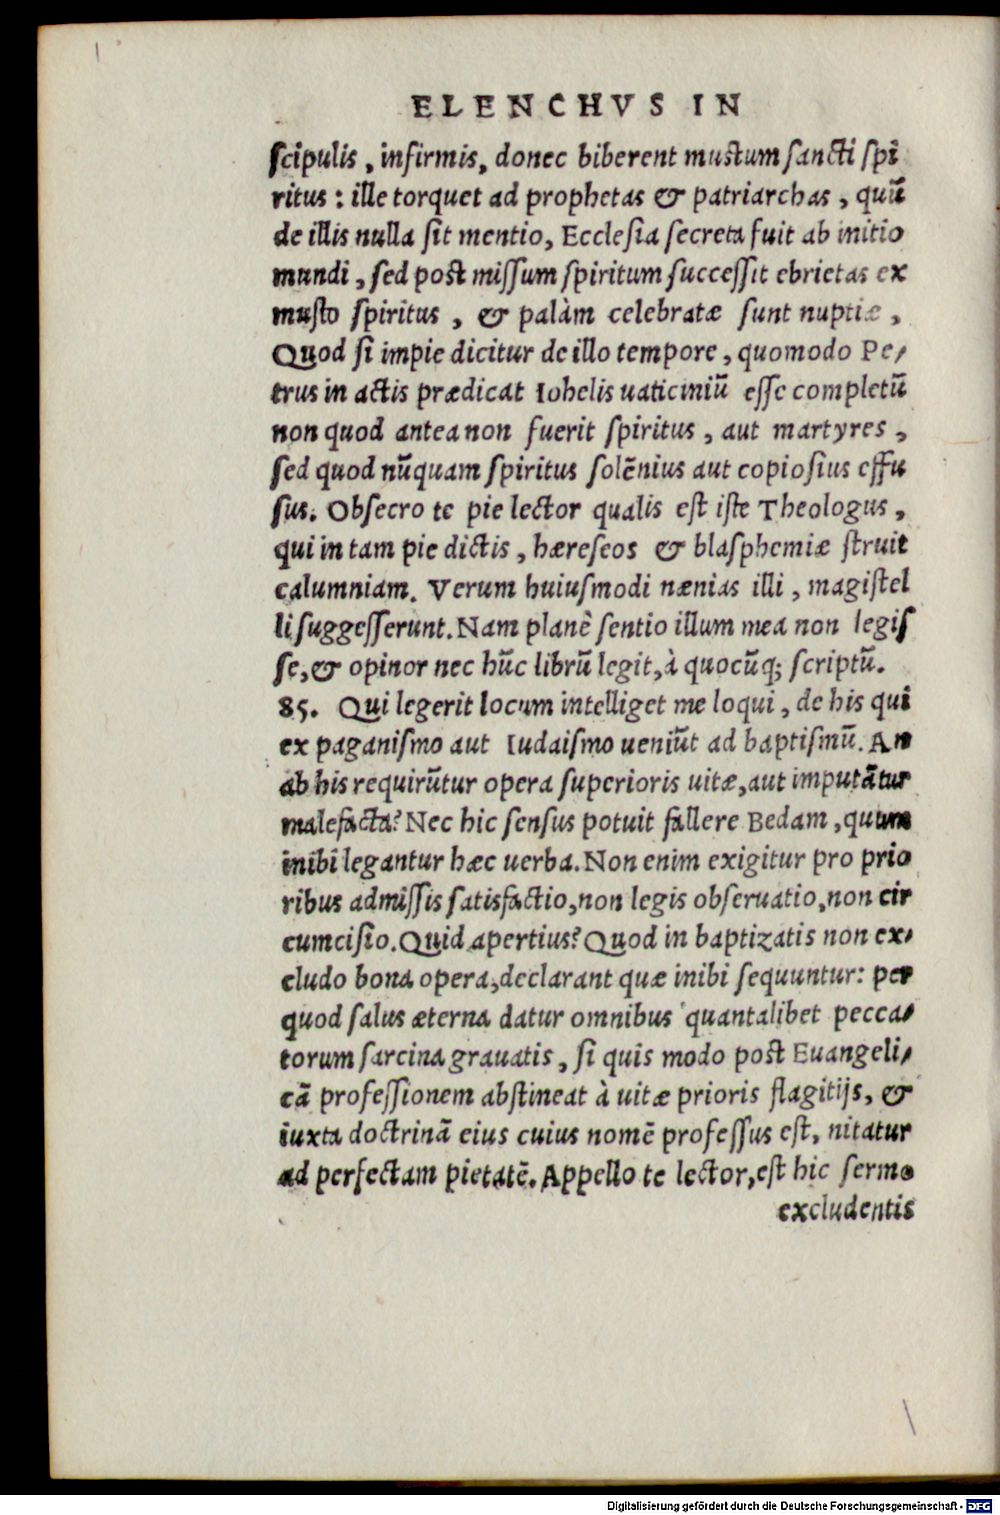 ELENCHVS IN
ſcipulis, infirmis, donec biberent muſtum ſancti ſpi
ritus: ille torquet ad prophetas & patriarchas, quū
de illis nulla ſit mentio, Eccleſia ſecreta fuit ab initio
mundi, ſed poſt miſſum ſpiritum ſucceſſit ebrietas ex
muſto ſpiritus, & palàm celebratæ ſunt nuptiæ,
Quod ſi impie dicitur de illo tempore, quomodo Pe/
trus in actis prædicat Iohelis uaticiniū eſſe completū
non quod antea non fuerit ſpiritus, aut martyres,
ſed quod nūquam ſpiritus ſolēnius aut copioſius effu
ſus. Obſecro te pie lector qualis eſt iſte Theologus,
qui in tam pie dictis, hæreſeos & blaſphemiæ ſtruit
calumniam. Verum huiuſmodi nænias illi, magiſtel
li ſuggeſſerunt. Nam planè ſentio illum mea non legiſ
ſe, & opinor nec hūc librū legit, à quocūq; ſcriptū.
85. Qui legerit locum intelliget me loqui, de his qui
ex paganiſmo aut Iudaiſmo ueniūt ad baptiſmū. An
ab his requirūtur opera ſuperioris uitæ, aut imputātur
malefacta? Nec hic ſenſus potuit fallere Bedam, quum
inibi legantur hæc uerba. Non enim exigitur pro prio
ribus admiſſis ſatisfactio, non legis obſeruatio, non cir
cumciſio. Quid apertius? Quod in baptizatis non ex/
cludo bona opera, declarant quæ inibi ſequuntur: per
quod ſalus æterna datur omnibus quantalibet pecca/
torum ſarcina grauatis, ſi quis modo poſt Euangeli/
cā profeſſionem abſtineat à uitæ prioris flagitijs, &
iuxta doctrinā eius cuius nomē profeſſus eſt, nitatur
ad perfectam pietatē. Appello te lector, eſt hic ſermo
excludentis
Digitalisierung gefördert durch die Deutsche Forschungsgemeinschaft - DFG